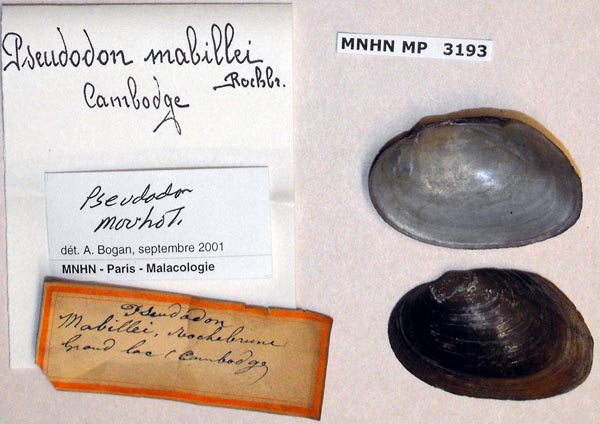 Pseudodon mabillei
Rochbr.
Cambodge
MNHN MP 3193
Pseudodon
mouhoti
dét. A. Bogan, septembre 2001
MNHN - Paris - Malacologie
Pseudodon
Mabillei, Rochebrune
Grand lac (Cambodge)